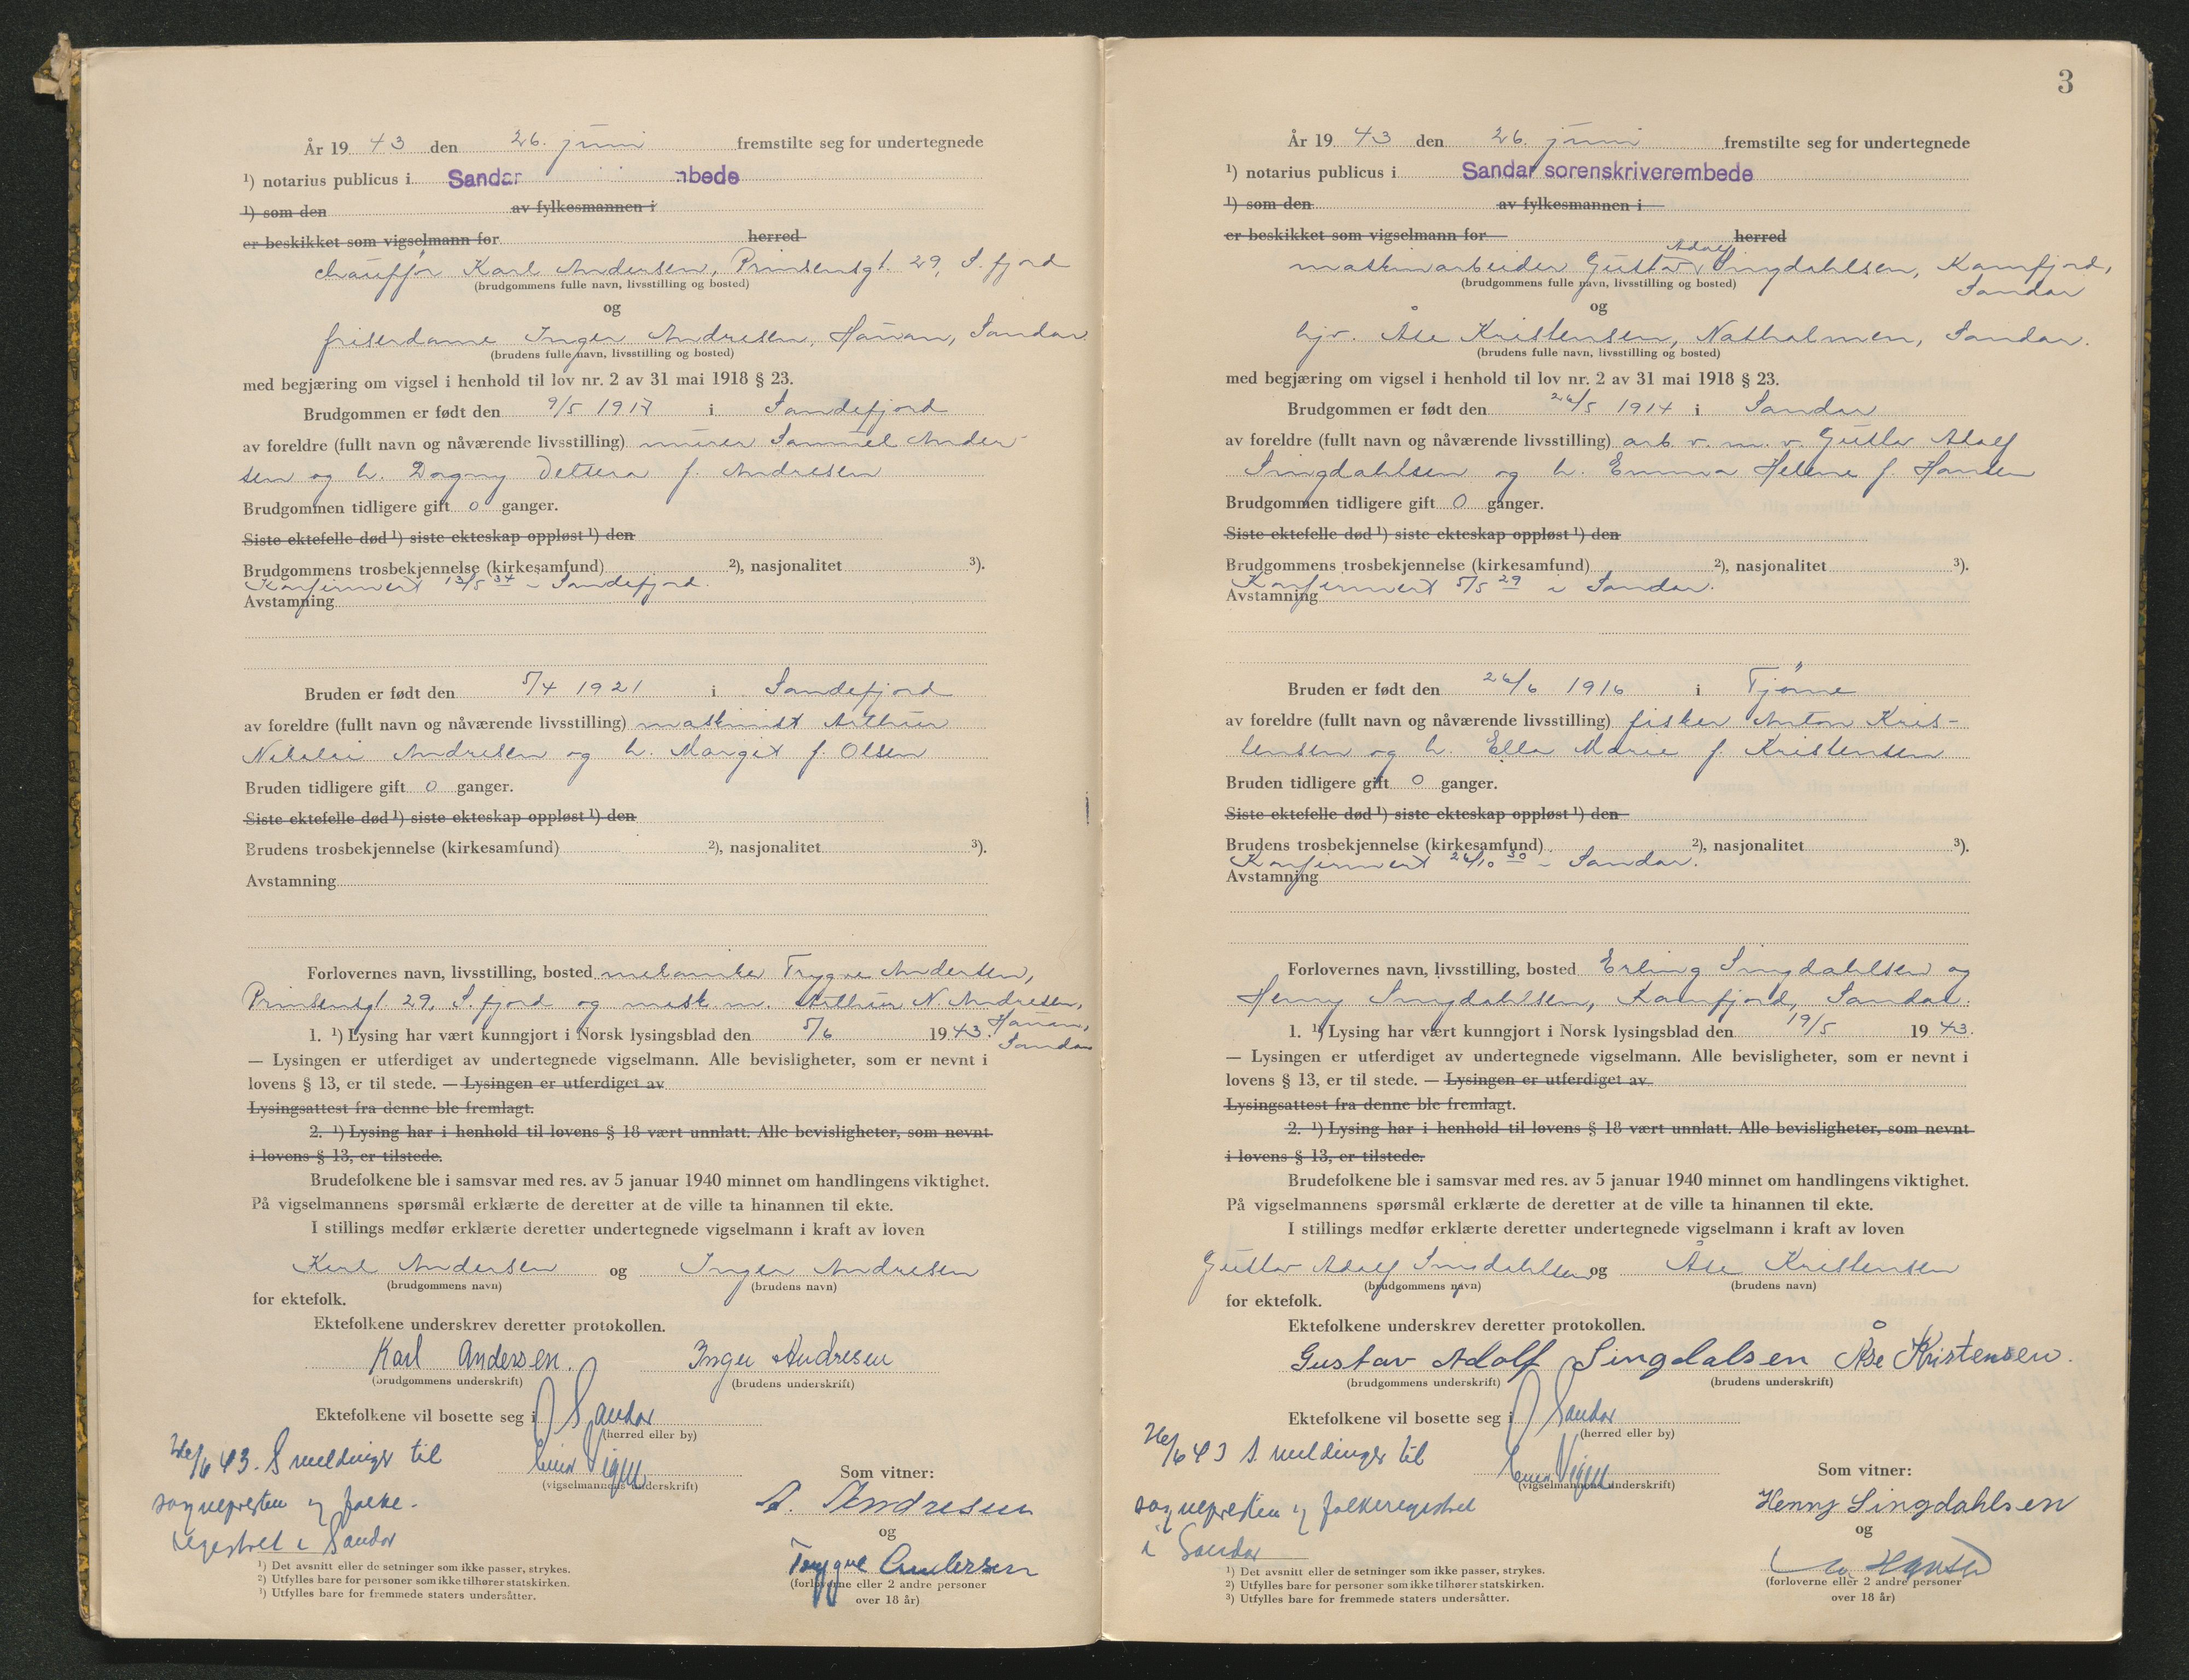 År 1943 den 26. juni fremstilte seg for undertegnede
¹) notarius publicus i Sandar nbede
¹) som den av fylkesmannen i
er beskikket som vigselmann for herred
chauffør Karl Andersen, Prinsensgt. 29, S. fjord
(brudgommens fulle navn, livsstilling og bosted)
og
friserdame Inger Andresen, Haûan, Sandar
(brudens fulle navn, livsstilling og bosted)
med begjæring om vigsel i henhold til lov nr. 2 av 31 mai 1918 § 23.
Brudgommen er født den 9/5 1917 i Sandefjord
av foreldre (fullt navn og nåværende livsstilling) murer Samuel Ander-
sen og h. Dagny f. Andresen
Brudgommen tidligere gift 0 ganger.
Siste ektefelle død ¹) siste ekteskap oppløst ¹) den
Brudgommens trosbekjennelse (kirkesamfund) ²), nasjonalitet ³).
Konfirmert 13/5 34 i Sandefjord.
Avstamning
Bruden er født den 5/4 1921 i Sandefjord
av foreldre (fullt navn og nåværende livsstilling) maskinist Arthur
Nikolai Andresen og h. Margit f. Olsen
Bruden tidligere gift 0 ganger.
Siste ektefelle død ¹) siste ekteskap oppløst ¹) den
Brudens trosbekjennelse (kirkesamfund) ²), nasjonalitet ³).
Avstamning
Forlovernes navn, livsstilling, bosted mekaniker Trygve Andersen,
Prinsensgt. 29, S. fjord og mask.m. Arthur N. Andresen,
Haûan,
Sandar
1. ¹) Lysing har vært kunngjort i Norsk lysingsblad den 5/6 1943.
— Lysingen er utferdiget av undertegnede vigselmann. Alle bevisligheter, som er nevnt i
lovens § 13, er til stede. — Lysingen er utferdiget av
Lysingsattest fra denne ble fremlagt.
2. ¹) Lysing har i henhold til lovens § 18 vært unnlatt. Alle bevisligheter, som nevnt
i lovens § 13, er tilstede.
Brudefolkene ble i samsvar med res. av 5 januar 1940 minnet om handlingens viktighet.
På vigselmannens spørsmål erklærte de deretter at de ville ta hinannen til ekte.
I stillings medfør erklærte deretter undertegnede vigselmann i kraft av loven
Karl Andersen og Inger Andresen
(brudgommens navn) (brudens navn)
for ektefolk.
Ektefolkene underskrev deretter protokollen.
Karl Andersen. Inger Andresen
(brudgommens underskrift) (brudens underskrift)
Ektefolkene vil bosette seg i Sandar
(herred eller by)
26/6 43. S meldinger til
sognepresten og folke-
registret i Sandar
(vigselmannens underskrift)
Som vitner:
A. Andresen
og
Trygve Andersen
(forloverne eller 2 andre personer
over 18 år)
¹) Det avsnitt eller de setninger som ikke passer, strykes.
²) Utfylles bare for personer som ikke tilhører statskirken.
³) Utfylles bare for fremmede staters undersåtter.
3
År 1943 den 26. juni fremstilte seg for undertegnede
¹) notarius publicus i Sandar sorenskriverembede
¹) som den av fylkesmannen i
er beskikket som vigselmann for herred
Adolf
maskinarbeider Gustav Singdahlsen, Kamfjord,
Sandar
(brudgommens fulle navn, livsstilling og bosted)
og
hjv. Åse Kristensen, Natholmen, Sandar.
(brudens fulle navn, livsstilling og bosted)
med begjæring om vigsel i henhold til lov nr. 2 av 31 mai 1918 § 23.
Brudgommen er født den 26/5 1914 i Sandar
av foreldre (fullt navn og nåværende livsstilling) arb. v. m. v. Gustav Adolf
Singdahlsen og h. Emma Helene f. Hansen
Brudgommen tidligere gift 0 ganger.
Siste ektefelle død ¹) siste ekteskap oppløst ¹) den
Brudgommens trosbekjennelse (kirkesamfund) ²), nasjonalitet ³).
Konfirmert 5/5 29 i Sandar.
Avstamning
Bruden er født den 26/6 1916 i Tjøme
av foreldre (fullt navn og nåværende livsstilling) fisker Anton Kris-
tensen og h. Ella Marie f. Kristensen
Bruden tidligere gift 0 ganger.
Siste ektefelle død ¹) siste ekteskap oppløst ¹) den
Brudens trosbekjennelse (kirkesamfund) ²), nasjonalitet ³).
Konfirmert 26/10 30 i Sandar.
Avstamning
Forlovernes navn, livsstilling, bosted Erling Singdahlsen og
Henny Singdahlsen, Kamfjord, Sandar.
1. ¹) Lysing har vært kunngjort i Norsk lysingsblad den 19/5 1943.
— Lysingen er utferdiget av undertegnede vigselmann. Alle bevisligheter, som er nevnt i
lovens § 13, er til stede. — Lysingen er utferdiget av
Lysingsattest fra denne ble fremlagt.
2. ¹) Lysing har i henhold til lovens § 18 vært unnlatt. Alle bevisligheter, som nevnt
i lovens § 13, er tilstede.
Brudefolkene ble i samsvar med res. av 5 januar 1940 minnet om handlingens viktighet.
På vigselmannens spørsmål erklærte de deretter at de ville ta hinannen til ekte.
I stillings medfør erklærte deretter undertegnede vigselmann i kraft av loven
Gustav Adolf Singdahlsen og Åse Kristensen
(brudgommens navn) (brudens navn)
for ektefolk.
Ektefolkene underskrev deretter protokollen.
Gustav Adolf Singdalsen Åse Kristensen.
(brudgommens underskrift) (brudens underskrift)
Ektefolkene vil bosette seg i Sandar
(herred eller by)
26/6 43 S meldinger til
sognepresten og folkeregistret
i Sandar
(vigselmannens underskrift)
Som vitner:
Henny Singdahlsen
og
Hansen
(forloverne eller 2 andre personer
over 18 år)
¹) Det avsnitt eller de setninger som ikke passer, strykes.
²) Utfylles bare for personer som ikke tilhører statskirken.
³) Utfylles bare for fremmede staters undersåtter.